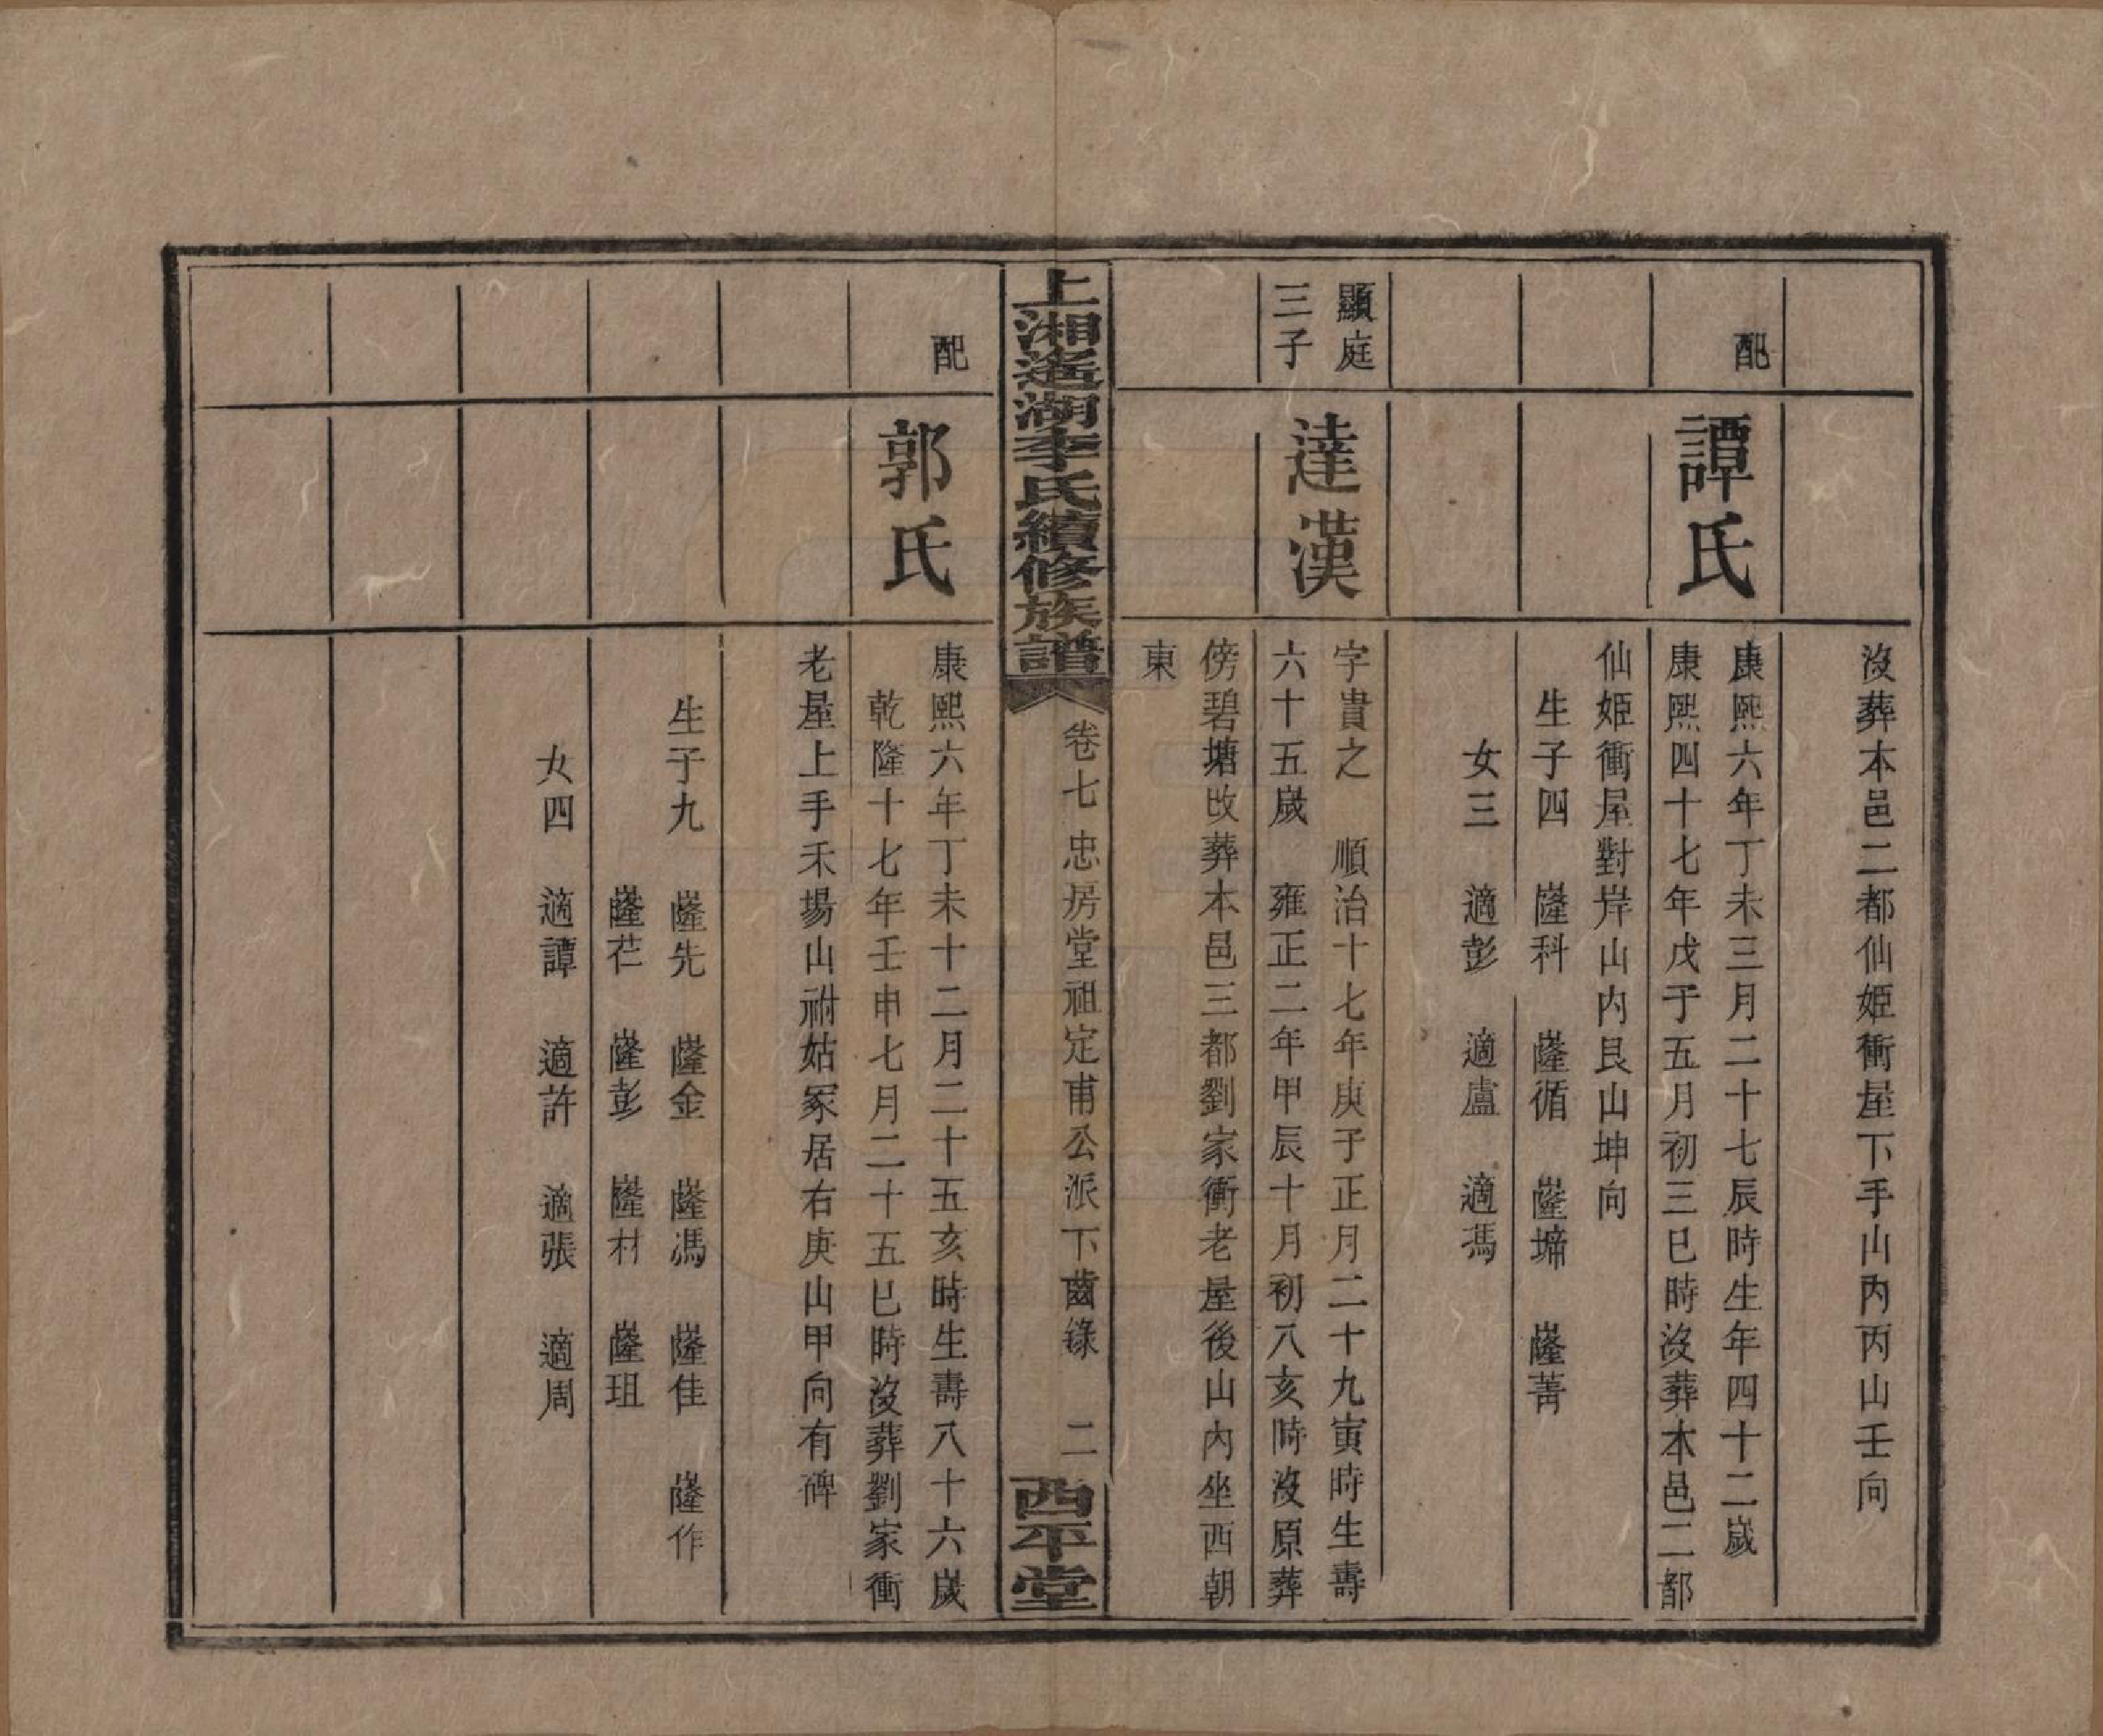 沒葬本邑二都仙姬衝屋下手山內丙山壬向
配
譚氏
康熙六年丁未三月二十七辰時生年四十二歲
康熙四十七年戊子五月初三巳時沒葬本邑二都
仙姬衝屋對岸山內艮山坤向
生子四 隆科 隆循 隆㙺 隆菁
女三 適彭 適盧 適馮
顯庭
三子
達漢
字貴之 順治十七年庚子正月二十九寅時生壽
六十五歲 雍正二年甲辰十月初八亥時沒原葬
傍碧塘改葬本邑三都劉家衝老屋後山內坐西朝
東
上湘遙湖李氏續修族譜
卷七 忠房堂祖定甫公派下齒錄 二
西平堂
配
郭氏
康熙六年丁未十二月二十五亥時生壽八十六歲
乾隆十七年壬申七月二十五巳時沒葬劉家衝
老屋上手禾場山祔姑冢居右庚山甲向有碑
生子九 隆先 隆金 隆馮 隆佳 隆作
隆芢 隆彭 隆材 隆珇
女四 適譚 適許 適張 適周